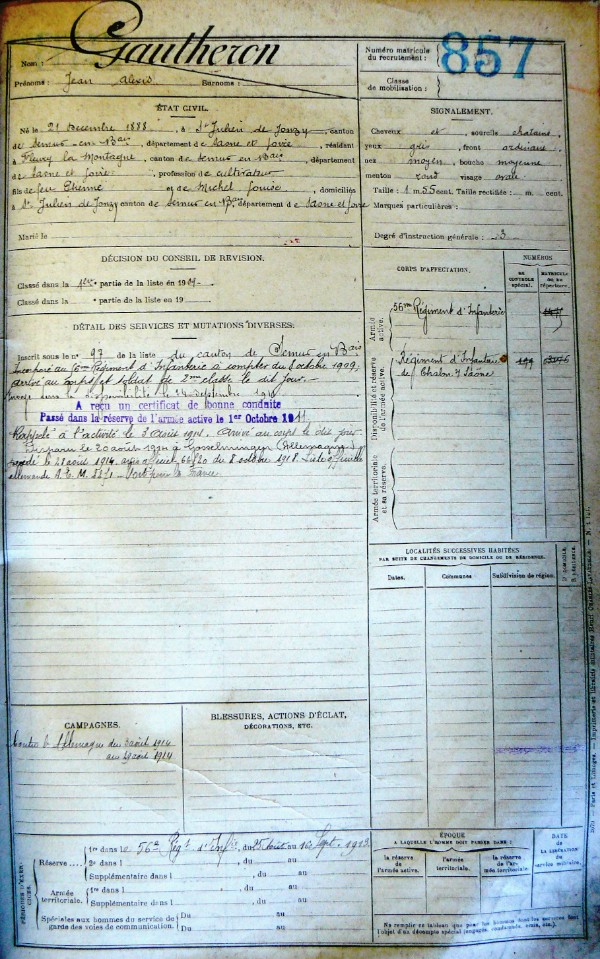 Gautheron
Nom :
Prénoms : Jean Alexis Surnoms :
Numéro matricule du recrutement : 857
Classe de mobilisation :
ÉTAT CIVIL.
Né le 21 Décembre 1888, à St Julien de Jonzy, canton
de Semur-en-Bais, département de Saone et Loire, résidant
à Fleury la Montagne, canton de Semur en Bais, département
de Saone et Loire, profession de cultivateur
fils de feu Etienne et de Michel Louise, domiciliés
à St Julien de Jonzy canton de Semur en Bais, département de Saone et Loire
Marié le
SIGNALEMENT.
Cheveux et sourcils chatains
yeux gris, front ordinaire
nez moyen, bouche moyenne
menton rond visage ovale
Taille : 1 m. 55 cent. Taille rectifiée : m. cent.
Marques particulières :
Degré d'instruction générale : 3
DÉCISION DU CONSEIL DE REVISION.
Classé dans la 1ère partie de la liste en 1909
Classé dans la e partie de la liste en 19
DÉTAIL DES SERVICES ET MUTATIONS DIVERSES.
Inscrit sous le n° 97 de la liste du canton de Semur en Bais
Incorporé au 56me Régiment d'Infanterie à compter du 8 octobre 1909
arrivé au corps et soldat de 2me classe le dit jour.
dans la disponibilité le 24 septembre 1911
A reçu un certificat de bonne conduite
Passé dans la réserve de l'armée active le 1er Octobre 1911
Rappelé à l'activité le 3 août 1914. Arrivé au corps le dit jour
Disparu le 20 août 1914 à (Allemagne)
décédé le 28 août 1914 avis officiel 66/20 du 8 octobre 1918. Liste officielle
allemande Mort pour la France
CORPS D'AFFECTATION.
NUMÉROS
AU CONTRÔLE spécial.
MATRICULE OU AU répertoire.
Armée active.
56me Régiment d'Infanterie
Disponibilité et réserve de l'armée active.
Régiment d'Infanterie
de Chalon s/ Saône
Armée territoriale et sa réserve.
LOCALITÉS SUCCESSIVES HABITÉES
PAR SUITE DE CHANGEMENTS DE DOMICILE OU DE RÉSIDENCE.
Dates. Communes Subdivision de région.
D. DOMICILE.
R. RÉSIDENCE.
CAMPAGNES.
Contre l'Allemagne du 3 août 1914
au 28 août 1914
BLESSURES, ACTIONS D'ÉCLAT,
DÉCORATIONS, ETC.
PÉRIODES D'EXERCICES.
Réserve....
1re dans le 56e Régt d'Infie, du 25 Août au 10 Sept. 1913
2e dans l , du au
Supplémentaire dans l , du au
Armée territoriale.
1re dans l , du au
Supplémentaire dans l , du au
Spéciales aux hommes du service de garde des voies de communication.
Du au
Du au
ÉPOQUE
A LAQUELLE L'HOMME DOIT PASSER DANS :
la réserve de l'armée active.
l'armée territoriale.
la réserve de l'armée territoriale.
DATE
DE LA LIBÉRATION
du service militaire.